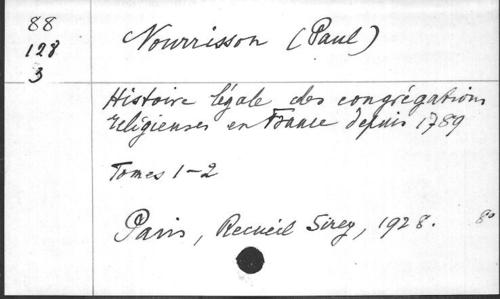 88
128
3
Nourrisson (Paul)
Histoire légale des congrégations
religieuses en France depuis 1789
Tomes 1-2
Paris, Recueil Sirey, 1928. 8º